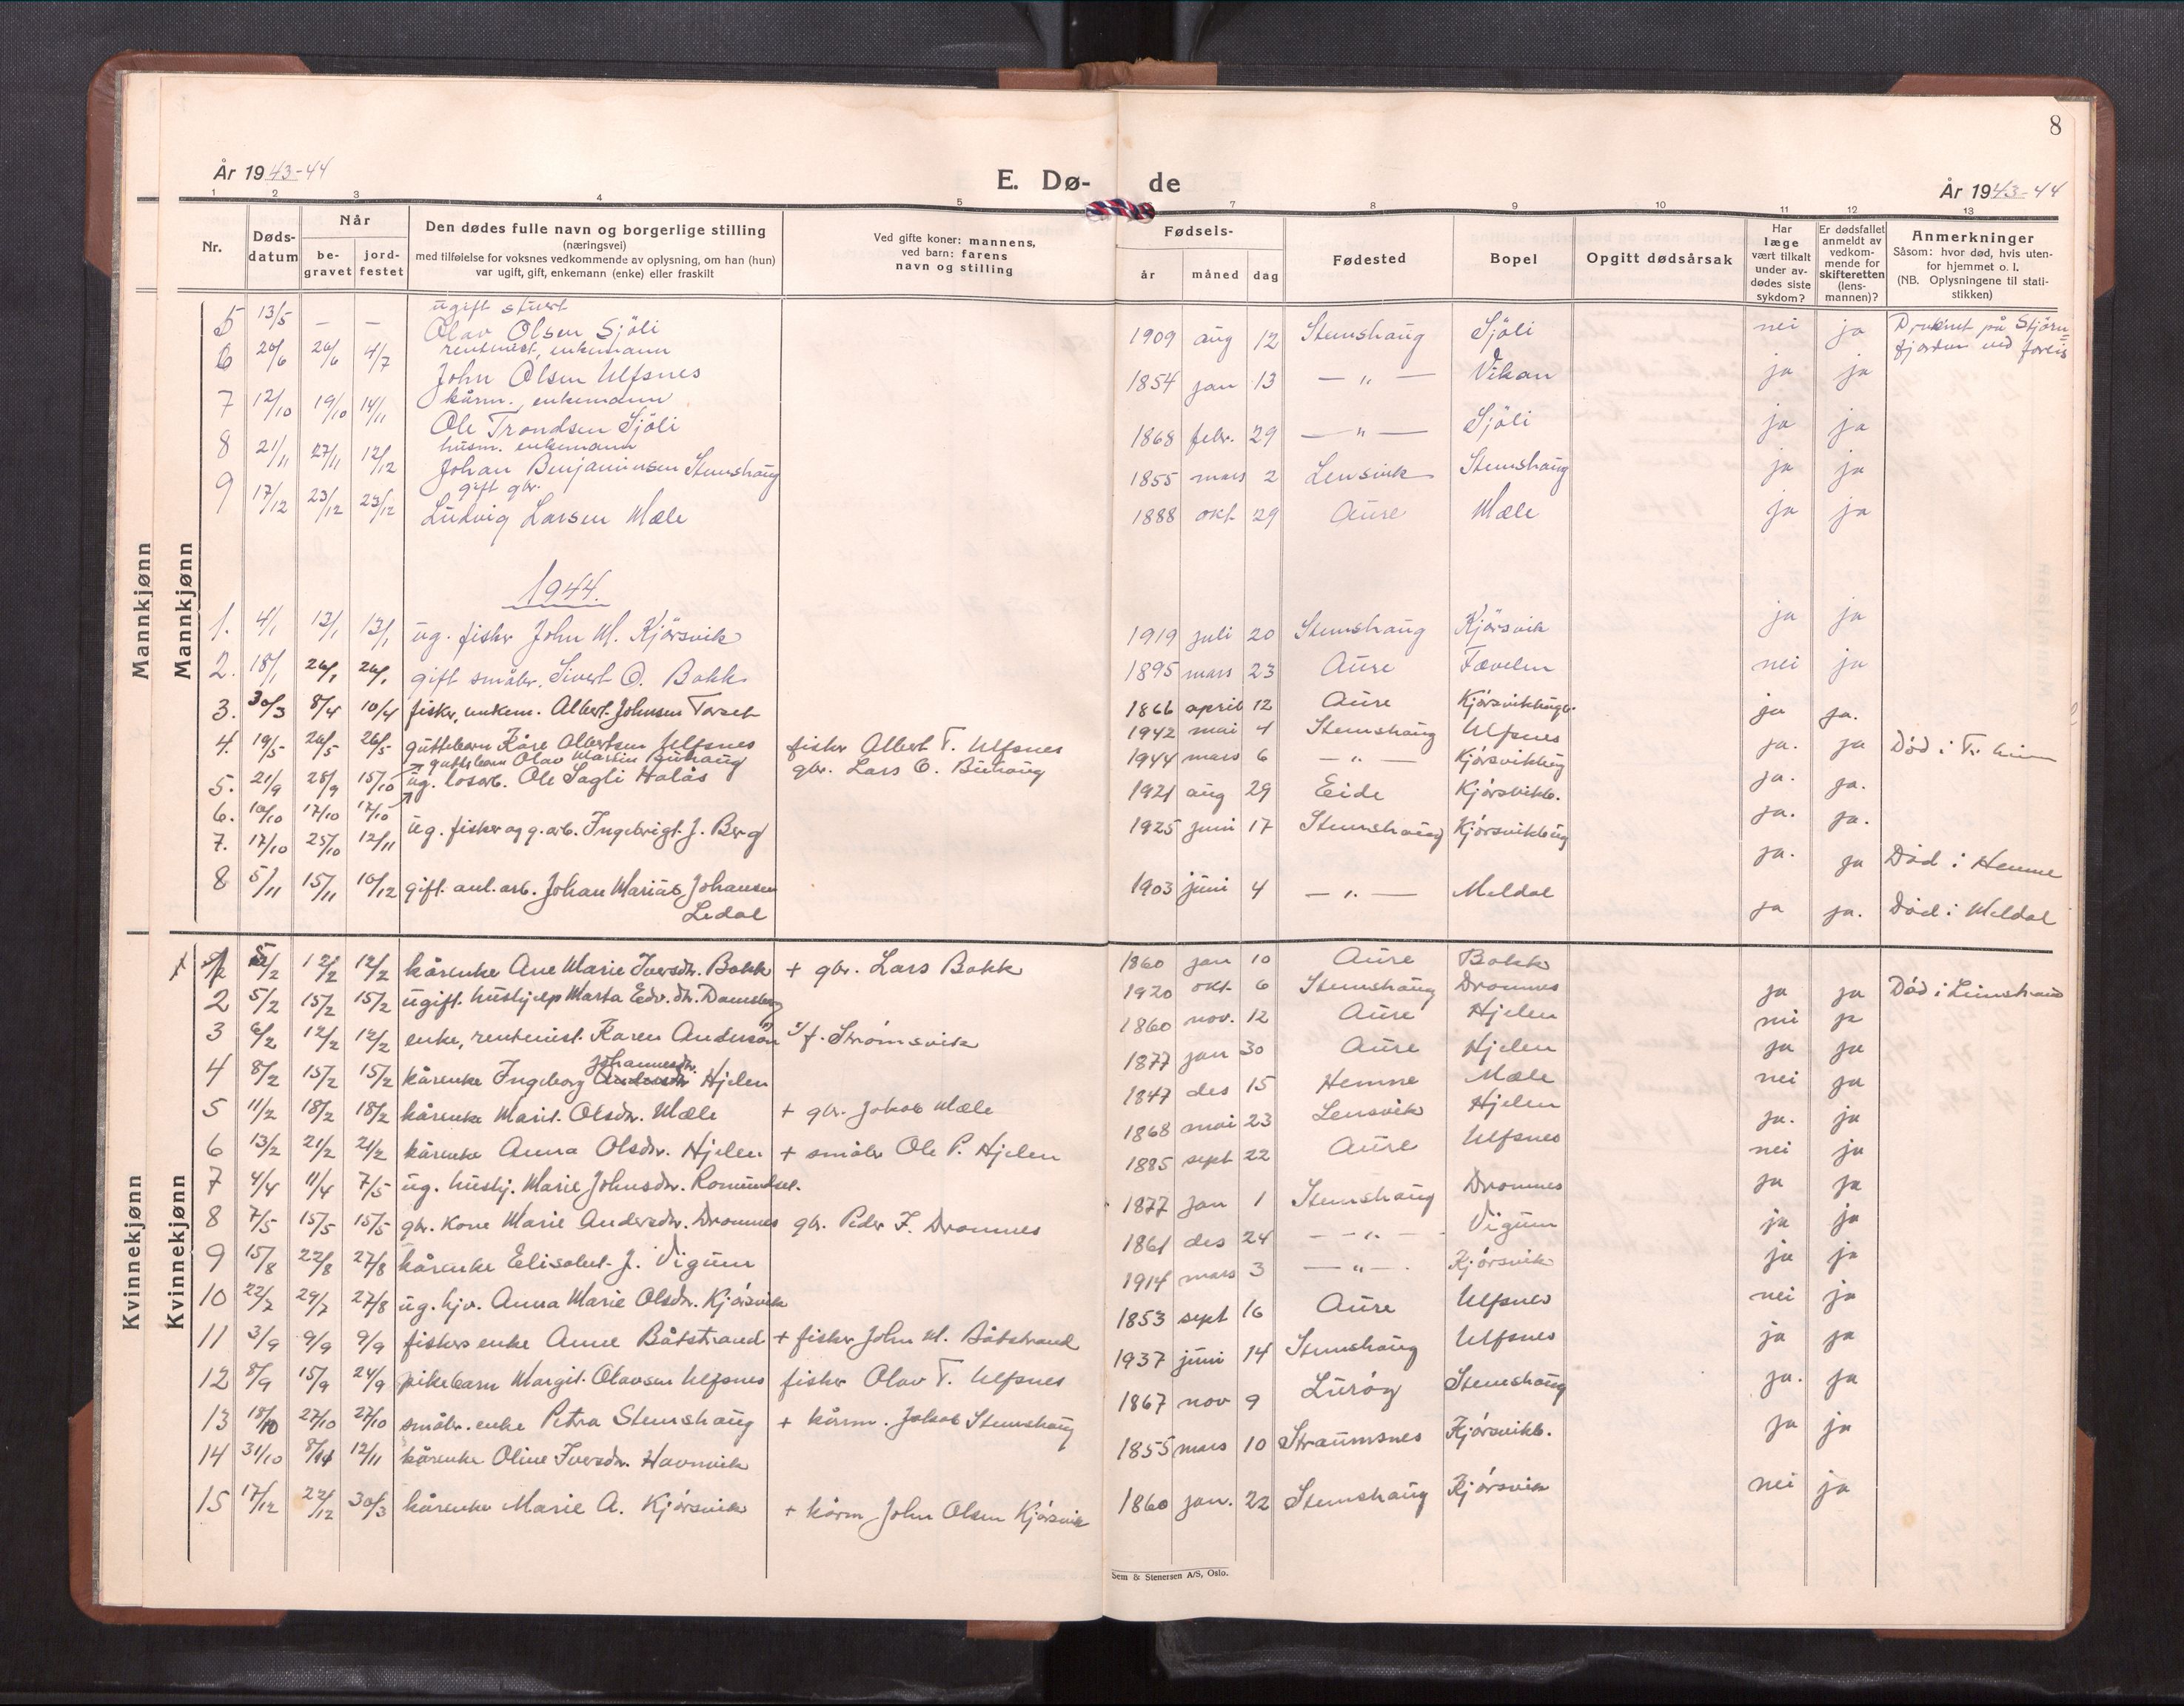 8
År 1943-44
E. Dø-
de
År 1943-44
1 2 3 4 5 7 8 9 10 11 12 13
Nr.
Døds-
datum
Når
be-
gravet
jord-
festet
Den dødes fulle navn og borgerlige stilling
(næringsvei)
med tilføielse for voksnes vedkommende av oplysning, om han (hun)
var ugift, gift, enkemann (enke) eller fraskilt
Ved gifte koner: mannens,
ved barn: farens
navn og stilling
Fødsels-
år måned dag
Fødested
Bopel
Opgitt dødsårsak
Har
læge
vært tilkalt
under av-
dødes siste
sykdom?
Er dødsfallet
anmeldt av
vedkom-
mende for
skifteretten
(lens-
mannen)?
Anmerkninger
Såsom: hvor død, hvis uten-
for hjemmet o. l.
(NB. Oplysningene til stati-
stikken)
Mannkjønn
Mannkjønn
ugift stuert
5 13/5 — — Olav Olsen Sjöli 1909 aug 12 Stemshaug Sjöli nei ja Druknet på Stjørn-
fjorden ved forlis
rentenist, enkemann
6 20/6 26/6 4/7 John Olsen Ulfsnes 1854 jan 13 — " — Vikan ja ja
kårm., enkemann
7 12/10 19/10 14/11 Ole Trondsen Sjöli 1868 febr. 29 — " — Sjöli ja ja
husm. enkemann
8 21/11 27/11 12/12 Johan Benjaminsen Stemshaug 1855 mars 2 Lensvik Stemshaug ja ja
gift gbr.
9 17/12 23/12 23/12 Ludvig Larsen Mæle 1888 okt 29 Aure Mæle ja ja
1944.
1. 4/1 13/1 13/1 ug. fisker John M. Kjörsvik 1919 juli 20 Stemshaug Kjörsvik ja ja
2. 18/1 26/1 26/1 gift småbr. Sivert O. Bakk 1895 mars 23 Aure Fævelen nei ja
3. 30/3 8/4 10/4 fisker, enkem. Albert Johnsen Torset 1866 april 12 Aure Kjörsvikbugt. ja ja.
4. 19/5 26/5 26/5 guttebarn Kåre Albertsen Ulfsnes fisker Albert T. Ulfsnes 1942 mai 4 Stemshaug Ulfsnes ja. ja Død i Tr.heim
guttebarn Olav Martin Buhaug gbr. Lars O. Buhaug 1944 mars 6 — " — Kjörsvikbug
5. 21/9 28/9 15/10 ug. løsarb. Ole Sagli Halås 1921 aug 29 Eide Kjørsvikb. ja. ja.
6. 10/10 17/10 17/10 ja. ja.
7. 17/10 25/10 12/11 ug. fisker og g.arb. Ingebrigt J. Berg 1925 juni 17 Stemshaug Kjørsvikbug ja. ja Død i Hemne
8 5/11 15/11 10/12 gift. anl. arb. Johan Marius Johansen 1903 juni 4 — " — Meldal ja ja. Død i Meldal
Ledal
Kvinnekjønn
Kvinnekjønn
1 5/2 12/2 12/2 kårenke Ane Marie Iversdtr. Bakk + gbr. Lars Bakk 1860 jan 10 Aure Bakk
2 5/2 15/2 15/2 ugift. hushjelp Marta Edv. dtr. Damsberg 1920 okt. 6 Stemshaug Dromnes ja ja Død i Leinstrand
3 6/2 12/2 12/2 enke, rentenist. Karen Anderson 1) 1) f. Strømsvik 1860 nov. 12 Aure Hjelen nei ja
Johannesdtr.
4 8/2 15/2 15/2 kårenke Ingeborg Andersdtr Hjelen 1877 jan 30 Aure Hjelen ja ja
5 11/2 18/2 18/2 kårenke Marit. Olsdtr. Mæle + gbr. Jakob Mæle 1847 des 15 Hemne Mæle nei ja
6 13/2 21/2 21/2 kårenke Anna Olsdtr. Hjelen + småbr Ole P. Hjelen 1868 mai 23 Lensvik Hjelen ja. ja
7 4/4 11/4 7/5 ug. hushj. Marie Johnsdtr. Romundset. 1885 sept 22 Aure Ulfsnes nei ja
8 7/5 15/5 15/5 gbr. kone Marie Andersdtr. Dromnes gbr. Peder J. Dromnes 1877 jan 1 Stemshaug Dromnes ja ja
9 15/8 22/8 27/8 kårenke Elisabet J. Vigum 1861 des 24 — " — Vigum ja ja
10 22/7 29/7 27/8 ug. hjv. Anna Marie Olsdtr. Kjørsvik 1914 mars 3 — " — Kjørsvik ja ja
11 3/9 9/9 9/9 fiskers enke Anne Båtstrand + fisker John M. Båtstrand 1853 sept 16 Aure Ulfsnes nei ja
12 8/9 15/9 24/9 pikebarn Margit. Olavsen Ulfsnes fisker Olav T. Ulfsnes 1937 juni 14 Stemshaug Ulfsnes ja ja
13 18/10 27/10 27/10 småbr. enke Petra Stemshaug + kårm. Jakob Stemshaug 1867 nov 9 Lurøy Stemshaug ja. ja
14 31/10 8/11 12/11 kårenke Oline Iversdtr. Havnvik 1855 mars 10 Straumsnes Kjørsvikb. ja ja
15 17/12 22/12 30/3 kårenke Marie A. Kjørsvik + kårm John Olsen Kjørsvik 1860 jan. 22 Stemshaug Kjørsvik nei ja
Sem & Stenersen A/S, Oslo.